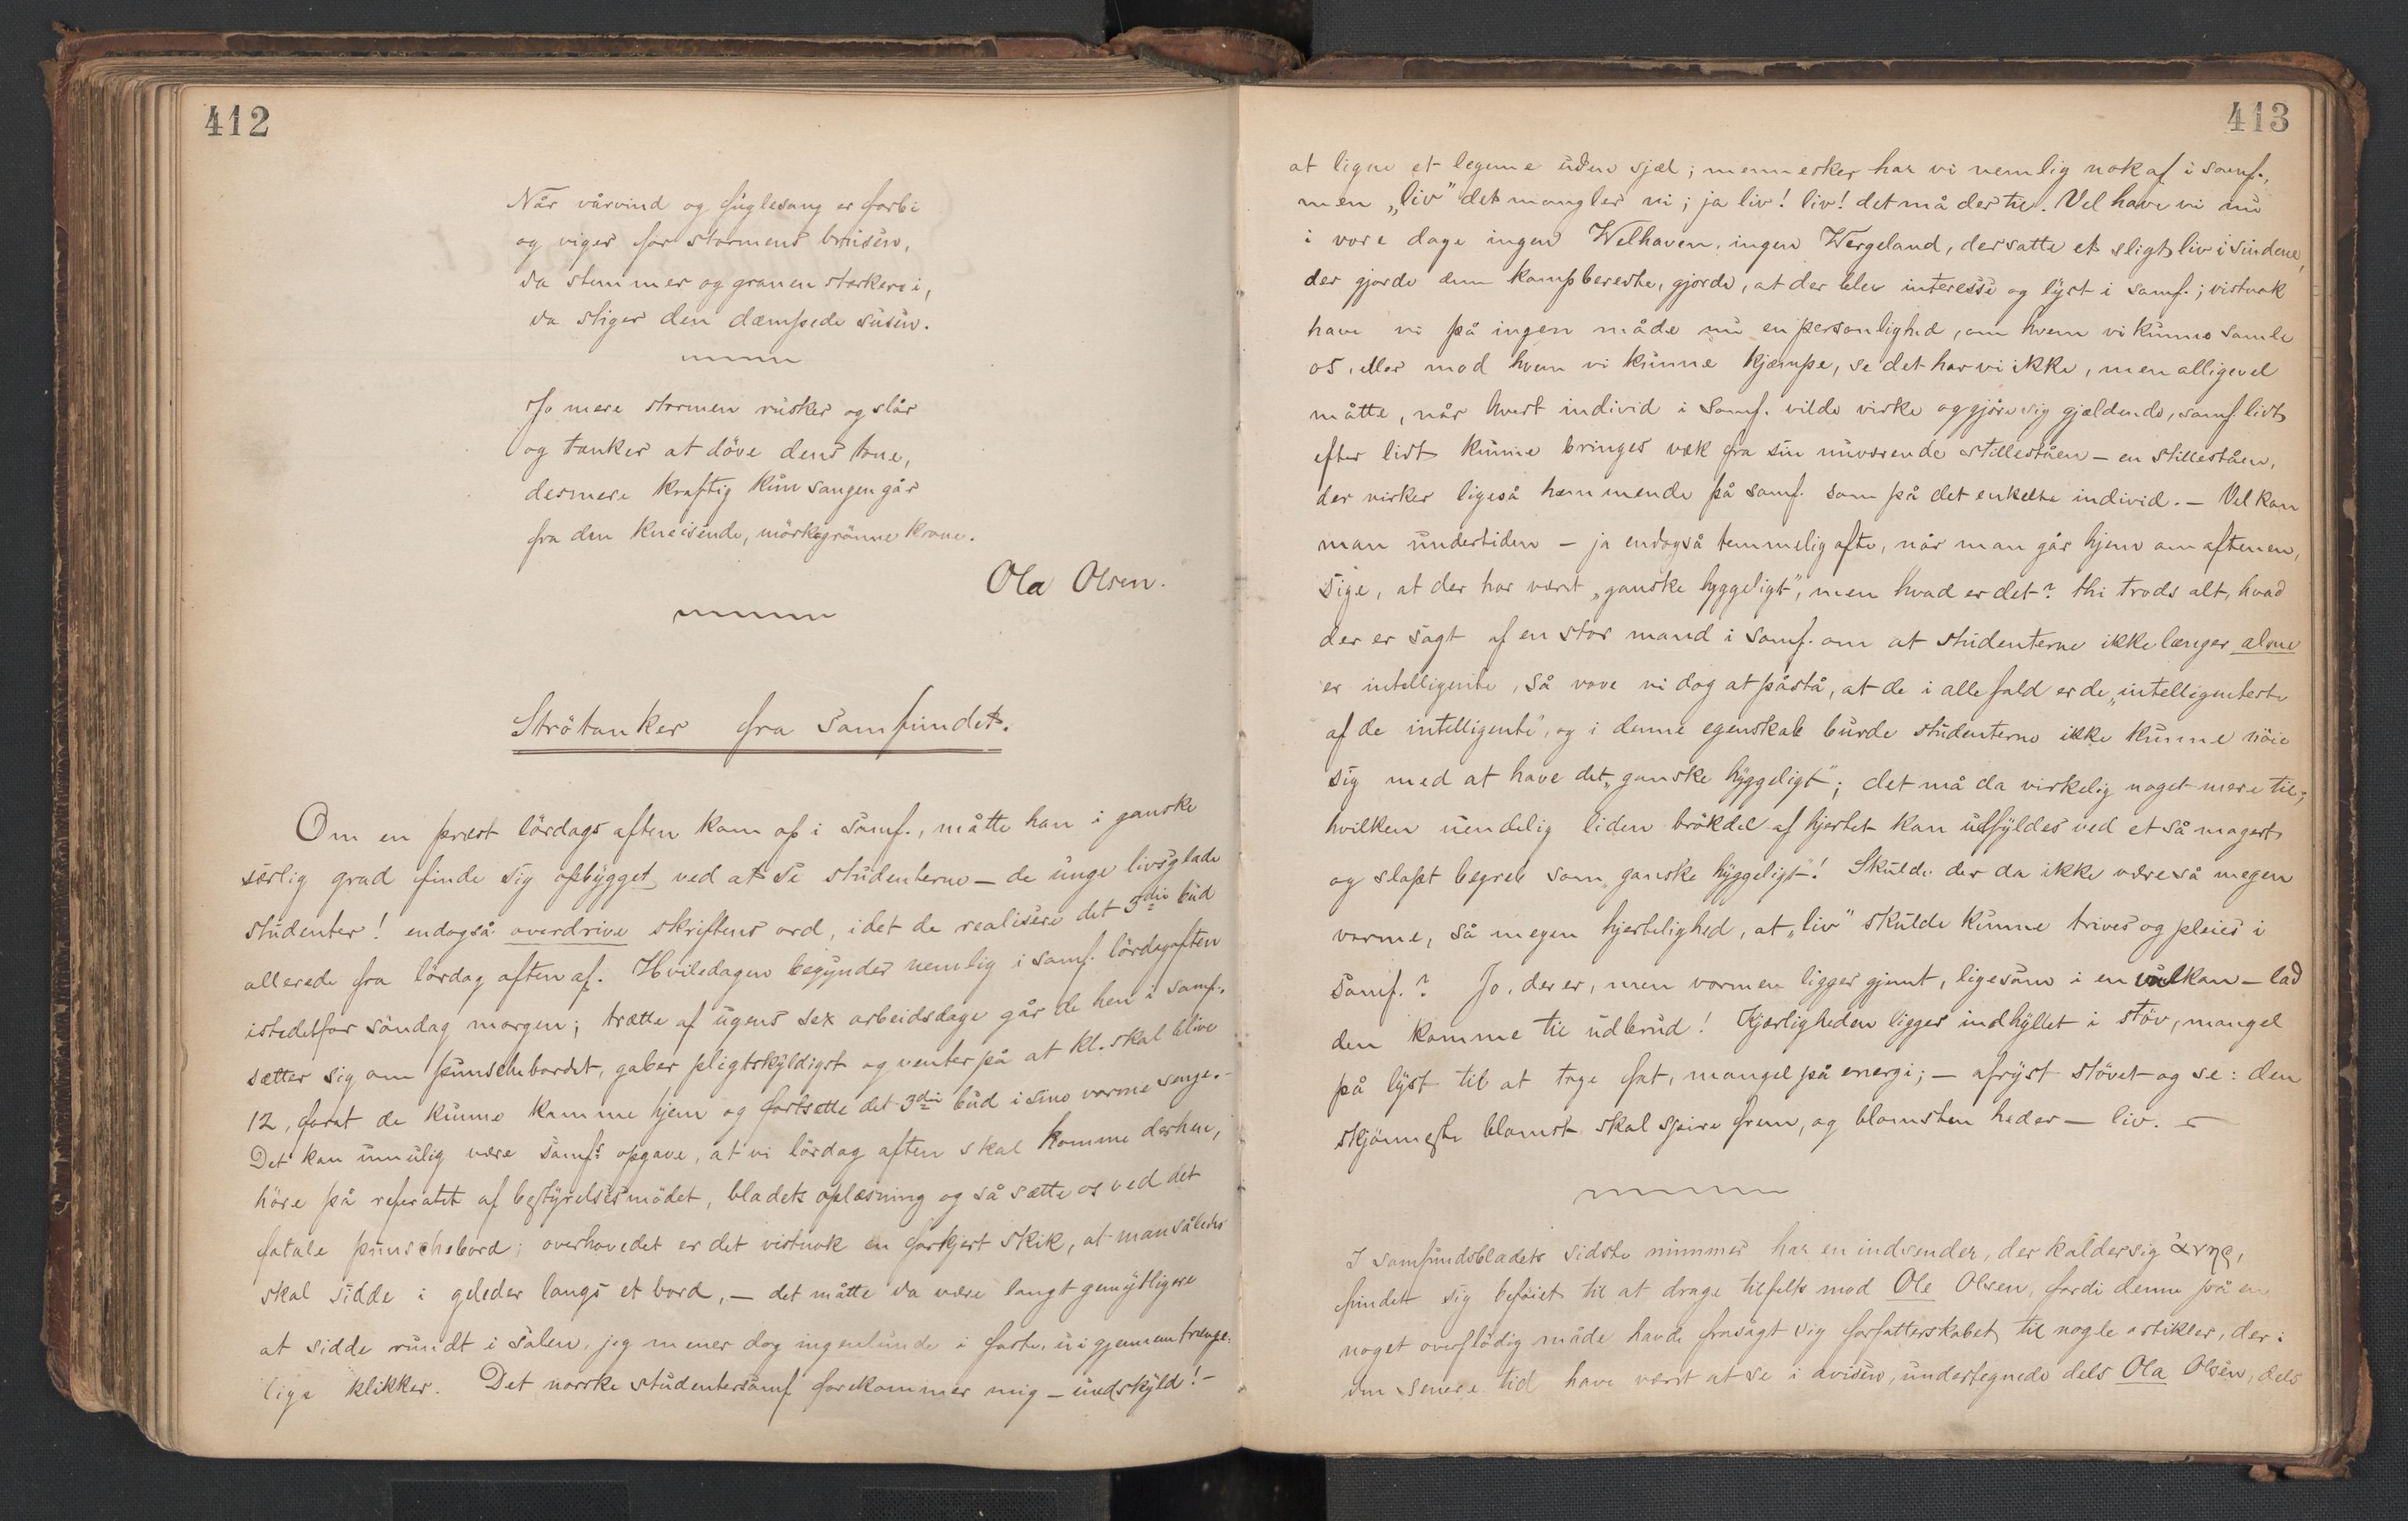 412
Når vårvind og fuglesang er forbi
og viger for stormens brusen,
da stemmer og granen stærkere i,
da stiger den dæmpede susen.
Jo mere stormen rusker og slår
og tænker at döve dens tone,
desmere kraftig kun sangen går
fra den kneisende, mörkegrönne krone.
Ola Olsen.
Strötanker fra Samfundet.
Om en præst lördags aften kom op i samf., måtte han i ganske
særlig grad finde sig opbygget ved at se studenterne – de unge livsglade
studenter! endogså overdrive skriftens ord, idet de realisere det 3die bud
allerede fra lördag aften af. Hviledagen begynder nemlig i samf. lördagaften
istedetfor söndag morgen; trætte af ugens sex arbeidsdage går de hen i samf.,
sætter sig om punschebordet, gaber pligtskyldigst og venter på at kl. skal blive
12, forat de kunne komme hjem og fortsætte det 3die bud i sine varme senge. –
Det kan umulig være samf.s opgave, at vi lördag aften skal komme derhen,
höre på referatet af bestyrelsesmödet, bladets oplæsning og så sætte os ved det
fatale punschebord; overhovedet er det vistnok en forkjert skik, at man således
skal sidde i geleder langs et bord, – det måtte da være langt gemytligere
at sidde rundt i salen, jeg mener dog ingenlunde i faste, uigjennemtrænge-
lige klikker. Det norske studentersamf forekommer mig – undskyld! –
413
at ligne et legeme uden sjæl; mennesker har vi nemlig nok af i samf.,
men „liv" det mangler vi; ja liv! liv! det må der til. Vel have vi nu
i vore dage ingen Welhaven, ingen Wergeland, der satte et sligt liv i sindene,
der gjorde dem kampberedte, gjorde, at der blev interesse og lyst i samf.; vistnok
have vi på ingen måde nu en personlighed, om hvem vi kunne samle
os, eller mod hvem vi kunne kjæmpe, se det har vi ikke, men alligevel
måtte, når hvert individ i Samf. vilde virke og gjöre sig gjældende, samf. lidt
efter lidt kunne bringes væk fra sin nuværende stilleståen – en stilleståen,
der virker ligeså hæmmende på samf. som på det enkelte individ. – Vel kan
man undertiden – ja endogså temmelig ofte, når man går hjem om aftenen,
sige, at der har været „ganske hyggeligt", men hvad er det? thi trods alt, hvad
der er sagt af en stor mand i samf. om at studenterne ikke længer alene
er intelligente, så vove vi dog at påstå, at de i alle fald er de „intelligenteste
af de intelligente", og i denne egenskab burde studenterne ikke kunne nöie
sig med at have det „ganske hyggeligt"; det må da virkelig noget mere til;
hvilken uendelig liden brökdel af hjertet kan udfyldes ved et så magert
og slapt begreb som „ganske hyggeligt"! Skulde der da ikke være så megen
varme, så megen hjertelighed, at „liv" skulde kunne trives og pleies i
samf.? Jo, der er, men varmen ligger gjemt, ligesom i en vulkan – lad
den komme til udbrud! Kjærligheden ligger indhyllet i stöv, mangel
på lyst til at tage fat, mangel på energi; – afryst stövet og se: den
skjönneste blomst skal spire frem, og blomsten heder – liv. –
I samfundsbladets sidste nummer har en indsender, der kalder sig
findet sig beföiet til at drage tilfelts mod Ole Olsen, fordi denne på en
noget overflödig måde havde frasagt sig forfatterskabet til nogle artikler, der i
den senere tid have været at se i avisen, undertegnede dels Ola Olsen, dels